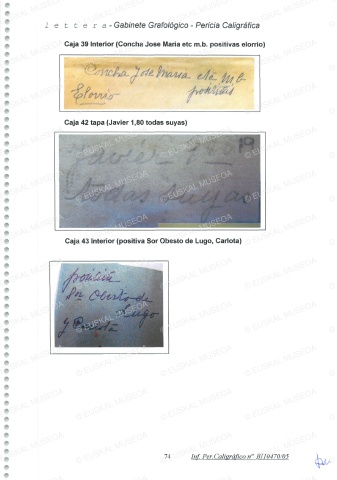 L e t t e r a - Gabinete Grafológico - Pericia Caligráfica
Caja 39 Interior (Concha Jose Maria etc m.b. positivas elorrio)
Concha Jose Maria etc m.b
Elorrio positivas
Caja 42 tapa (Javier 1,80 todas suyas)
Javier 1,80
todas suyas
Caja 43 Interior (positiva Sor Obesto de Lugo, Carlota)
positiva
Sor Obesto de
Lugo
y Carlota
74 Inf. Per.Caligráfico nº B/10470/05
© EUSKAL MUSEOA